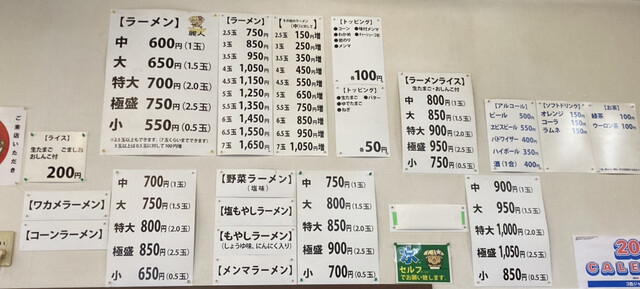 【ラーメン】
中 600円(1玉)
大 650円(1.5玉)
特大 700円(2.0玉)
極盛 750円(2.5玉)
小 550円(0.5玉)
【ラーメン】
2.5玉 750円
3玉 850円
3.5玉 950円
4玉 1,050円
4.5玉 1,150円
5玉 1,250円
5.5玉 1,350円
6玉 1,450円
6.5玉 1,550円
7玉 1,650円
2.5玉 150円増
3玉 250円増
3.5玉 350円増
4玉 450円増
4.5玉 550円増
5玉 650円増
5.5玉 750円増
6玉 850円増
6.5玉 950円増
7玉 1,050円増
【トッピング】
●コーン ●味付メンマ
●わかめ
●岩のり
●メンマ
各100円
【トッピング】
●生たまご ●バター
●ゆでたまご
●ねぎ
各50円
【ラーメンライス】
生たまご・おしんこ付
中 800円(1玉)
大 850円(1.5玉)
特大 900円(2.0玉)
極盛 950円(2.5玉)
小 750円(0.5玉)
【アルコール】
ビール 500円
ヱビスビール 550円
バドワイザー 400円
ハイボール 350円
酒(1合) 400円
【ソフトドリンク】
オレンジ 150円
コーラ 150円
ラムネ 150円
【お茶】
緑茶 100円
ウーロン茶 100円
ご来店いただき
【ライス】
生たまご ごましお
おしんこ付
200円
【ワカメラーメン】
【コーンラーメン】
中 700円(1玉)
大 750円(1.5玉)
特大 800円(2.0玉)
極盛 850円(2.5玉)
小 650円(0.5玉)
【野菜ラーメン】
(塩味)
【塩もやしラーメン】
【もやしラーメン】
(しょうゆ味、にんにく入り)
【メンマラーメン】
中 750円(1玉)
大 800円(1.5玉)
特大 850円(2.0玉)
極盛 900円(2.5玉)
小 700円(0.5玉)
セルフ
でお願い致します
中 900円(1玉)
大 950円(1.5玉)
特大 1,000円(2.0玉)
極盛 1,050円(2.5玉)
小 850円(0.5玉)
20
CALE